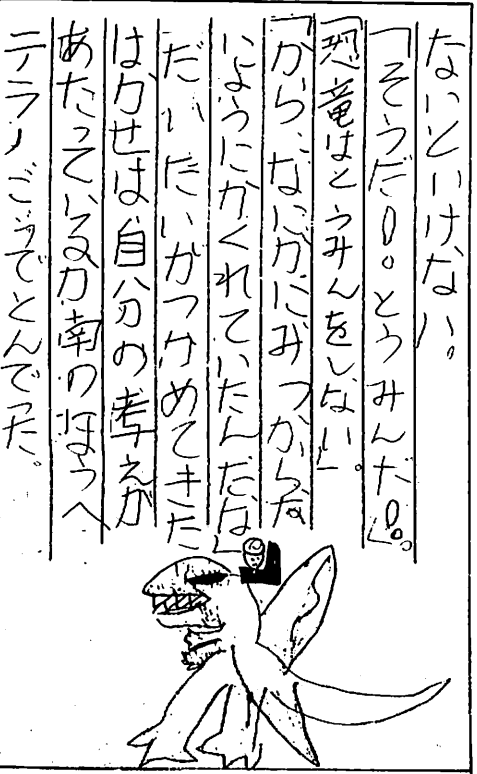 ないといけない。
「そうだ!。とうみんだ!。」。
「恐竜はとうみんをしない」。
「から、なにかにみつからな
いようにかくれていたんだな」
だいだいがつかめてきた
はかせは自分の考えが
あたっているか南のほうへ
テラノごうでとんでった。